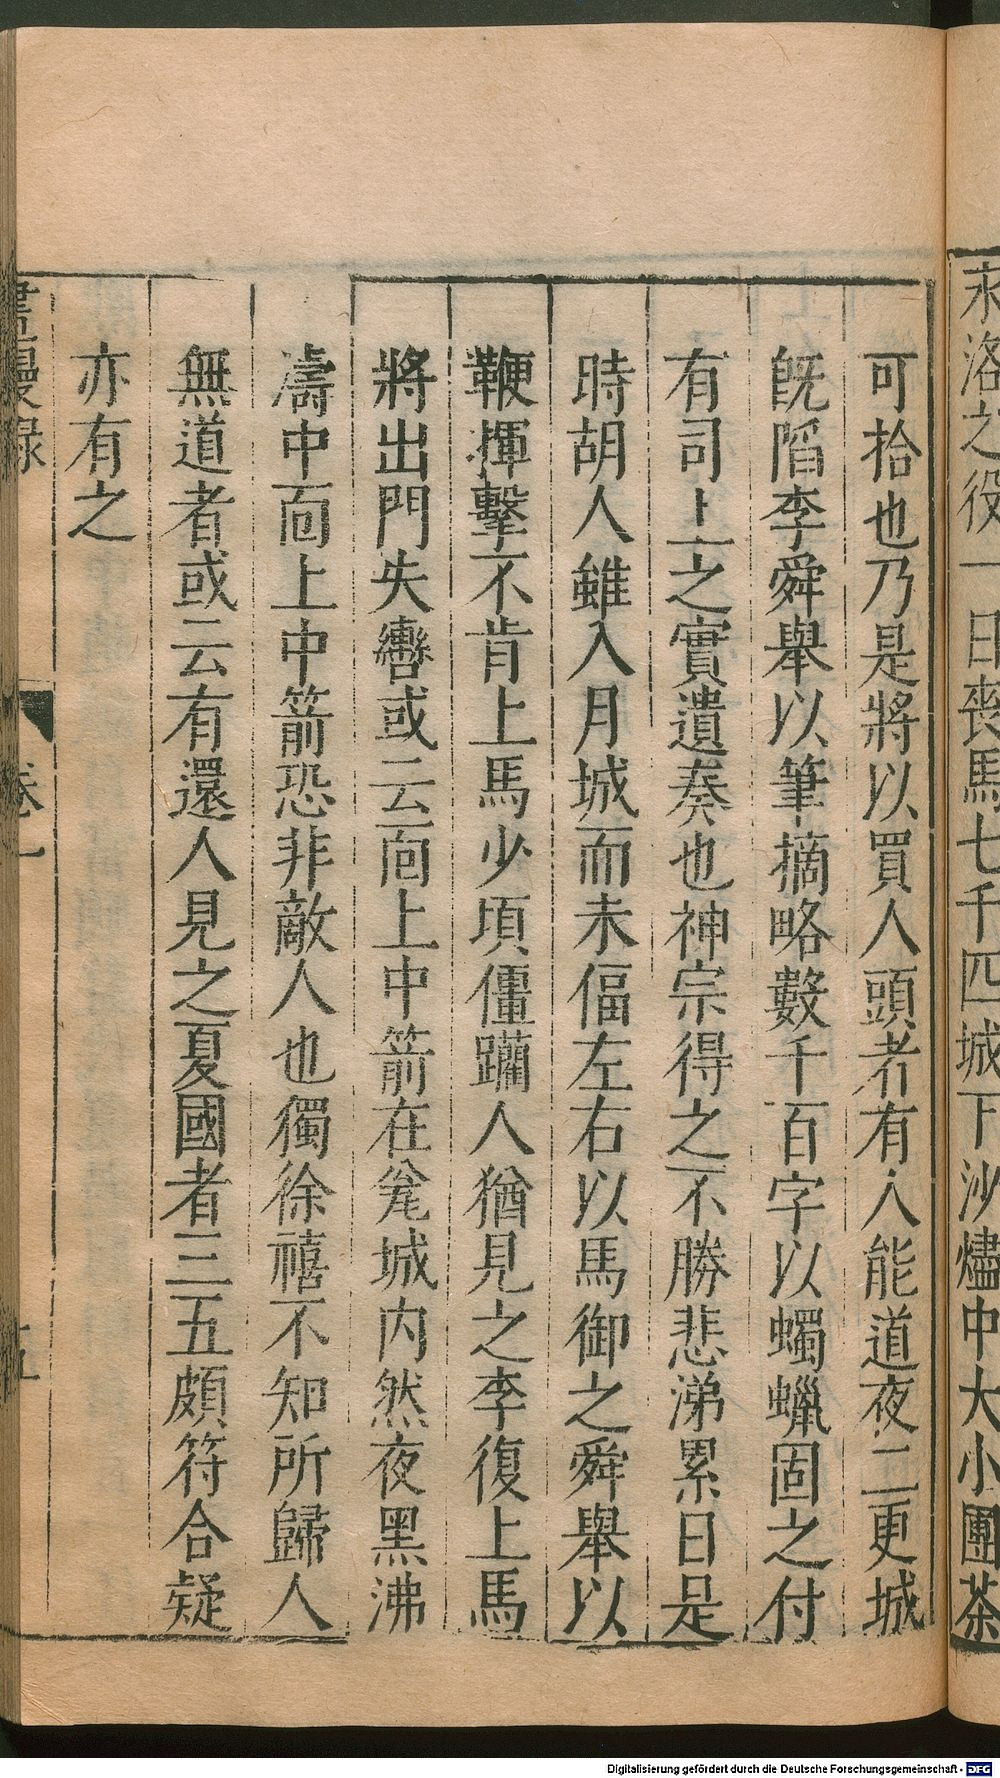 永洛之役一日喪馬七千匹城下沙燼中大小團茶
可拾也乃是將以買人頭者有人能道夜二更城
旣陷李舜舉以筆摘略數千百字以蠋蠟固之付
有司上之實遺奏也神宗得之不勝悲涕累日是
時胡人雖入月城而未偪左右以馬御之舜舉以
鞭揮擊不肯上馬少頃僵躪人猶見之李復上馬
將出門失轡或云靣上中箭在瓮城內然夜黑沸
濤中靣上中箭恐非敵人也獨徐禧不知所歸人
無道者或云有還人見之夏國者三五頗符合疑
亦有之
畫墁錄 卷一 十五
Digitalisierung gefördert durch die Deutsche Forschungsgemeinschaft - DFG